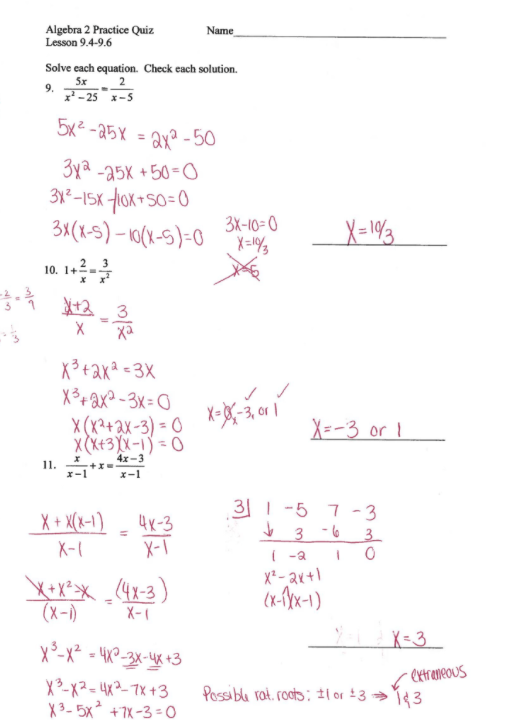 Algebra 2 Practice Quiz Name
Lesson 9.4-9.6
Solve each equation. Check each solution.
9. 5x/(x² − 25) = 2/(x − 5)
5x² − 25x = 2x² − 50
3x² − 25x + 50 = 0
3x² − 15x − 10x + 50 = 0
3x(x − 5) − 10(x − 5) = 0
3x − 10 = 0
x = 10/3
x = 5
x = 10/3
10. 1 + 2/x = 3/x²
-2/3 = 3/9
1/3
(x + 2)/x = 3/x²
x³ + 2x² = 3x
x³ + 2x² − 3x = 0
x(x² + 2x − 3) = 0
x(x + 3)(x − 1) = 0
x = 0, −3, or 1
x = −3 or 1
11. x/(x − 1) + x = (4x − 3)/(x − 1)
(x + x(x − 1))/(x − 1) = (4x − 3)/(x − 1)
(x + x² − x)/(x − 1) = (4x − 3)/(x − 1)
x³ − x² = 4x² − 3x − 4x + 3
x³ − x² = 4x² − 7x + 3
x³ − 5x² + 7x − 3 = 0
3| 1 −5 7 −3
↓ 3 −6 3
1 −2 1 0
x² − 2x + 1
(x − 1)(x − 1)
x = 3
extraneous
Possible rat. roots: ±1 or ±3 ⇒ 1 & 3